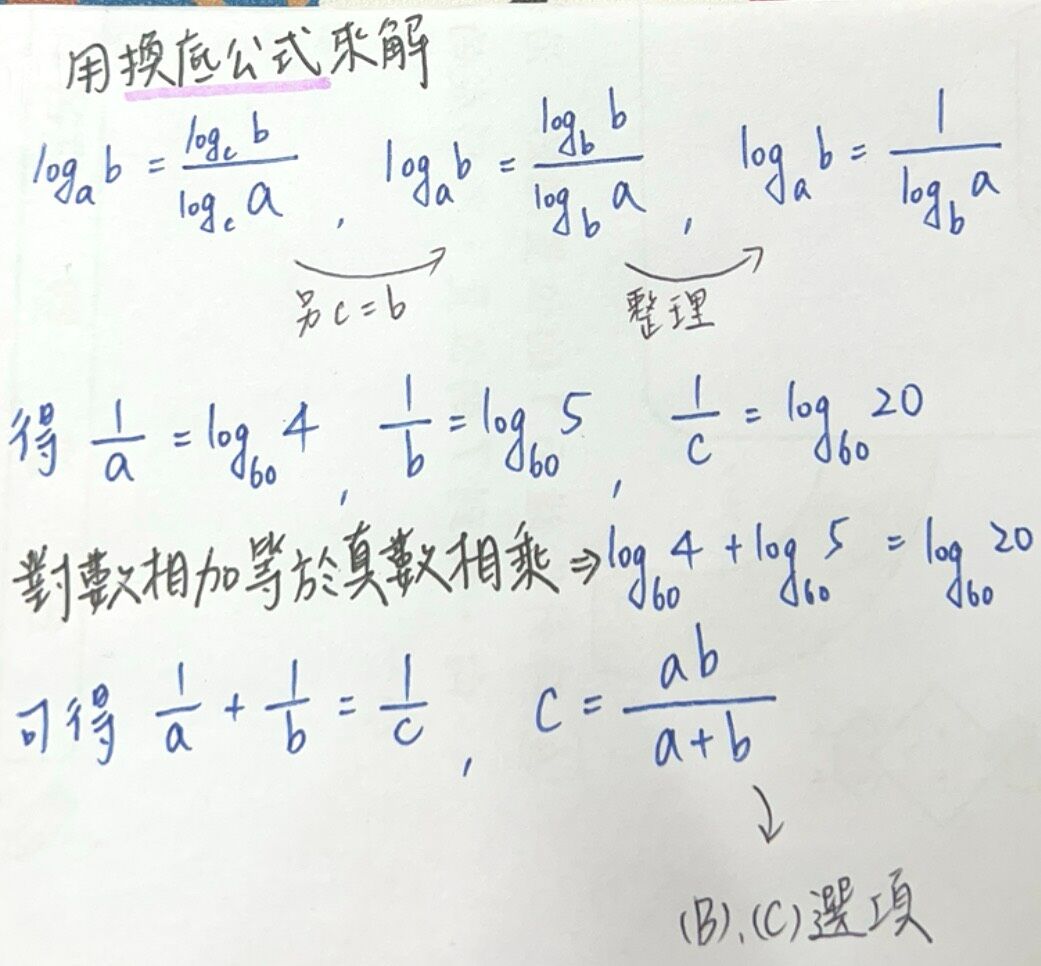 用換底公式來解
log_a b = \frac{log_c b}{log_c a} , log_a b = \frac{log_b b}{log_b a} , log_a b = \frac{1}{log_b a}
另 c = b 整理
得 \frac{1}{a} = log_{60} 4 , \frac{1}{b} = log_{60} 5 , \frac{1}{c} = log_{60} 20
對數相加等於真數相乘 ⇒ log_{60} 4 + log_{60} 5 = log_{60} 20
可得 \frac{1}{a} + \frac{1}{b} = \frac{1}{c} , c = \frac{ab}{a+b}
↓
(B)、(C)選項